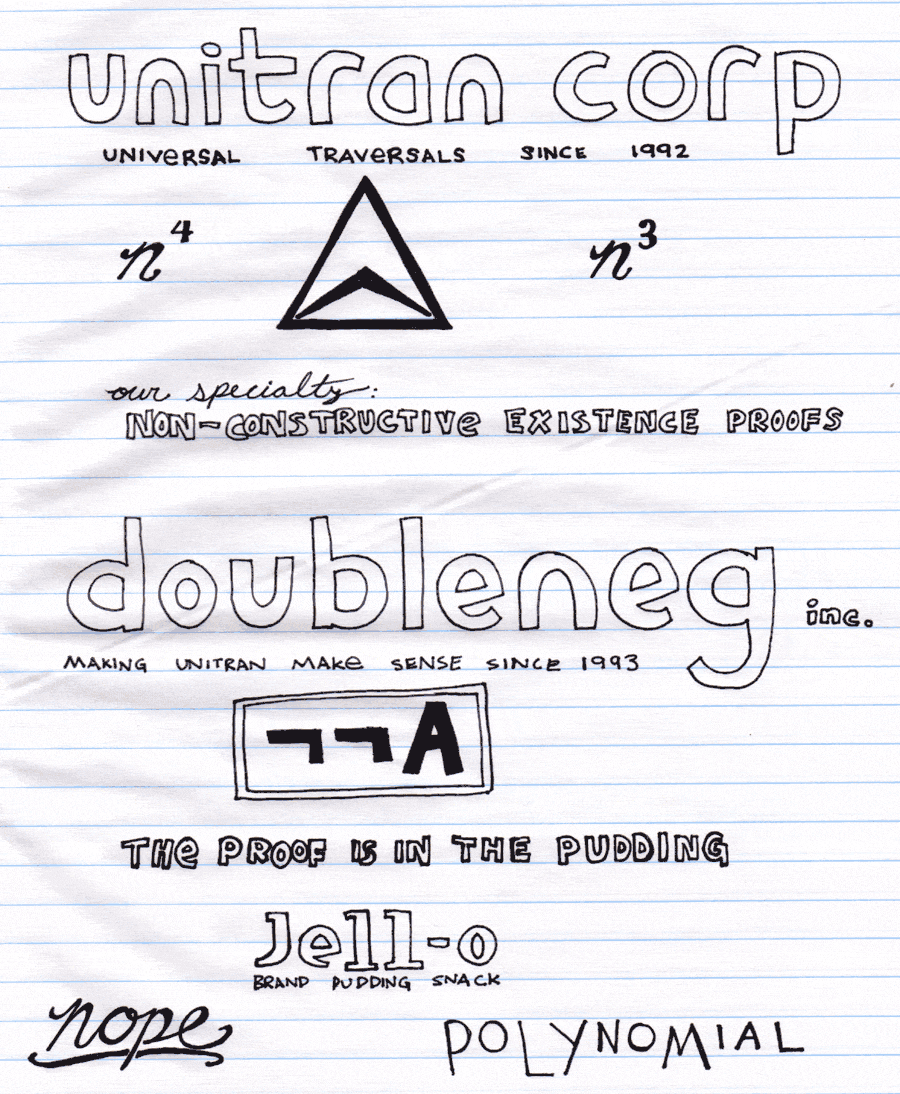 unitran corp
UNIVeRSAL TRAVeRSALS SINCE 1992
n⁴ n³
our specialty:
NON-CONSTRUCTIVe EXISTENCE PROOFS
doubleneg inc.
MAKING UNITRAN MAKe SENSE SINCE 1993
¬¬A
THe PROOF IS IN THE PUDDING
Jell-o
BRAND PUDDING SNACK
nope POLYNOMIAL